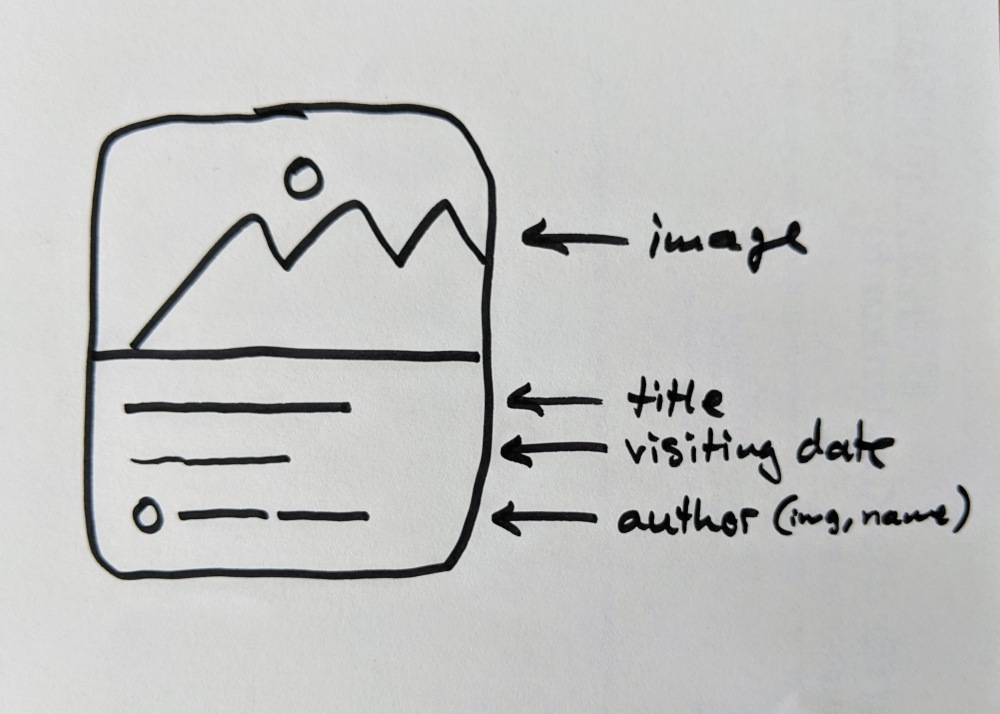 image
title
visiting date
author (img, name)